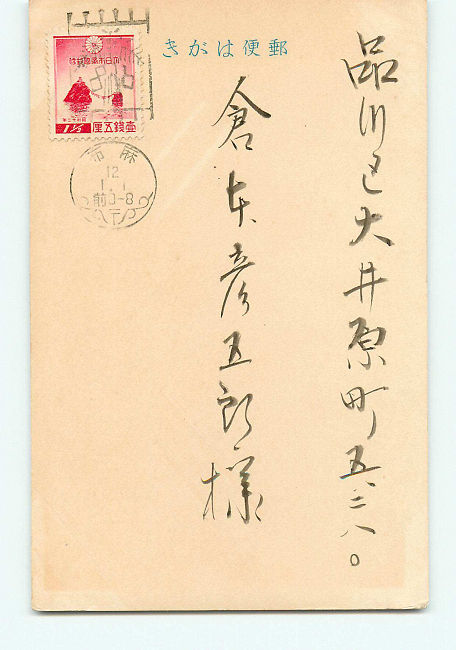 郵便はがき
品川区大井原町五二八〇
倉本彦五郎様
大日本帝國郵便
壹錢五厘
1½
麻布
12
1.1
前0-8